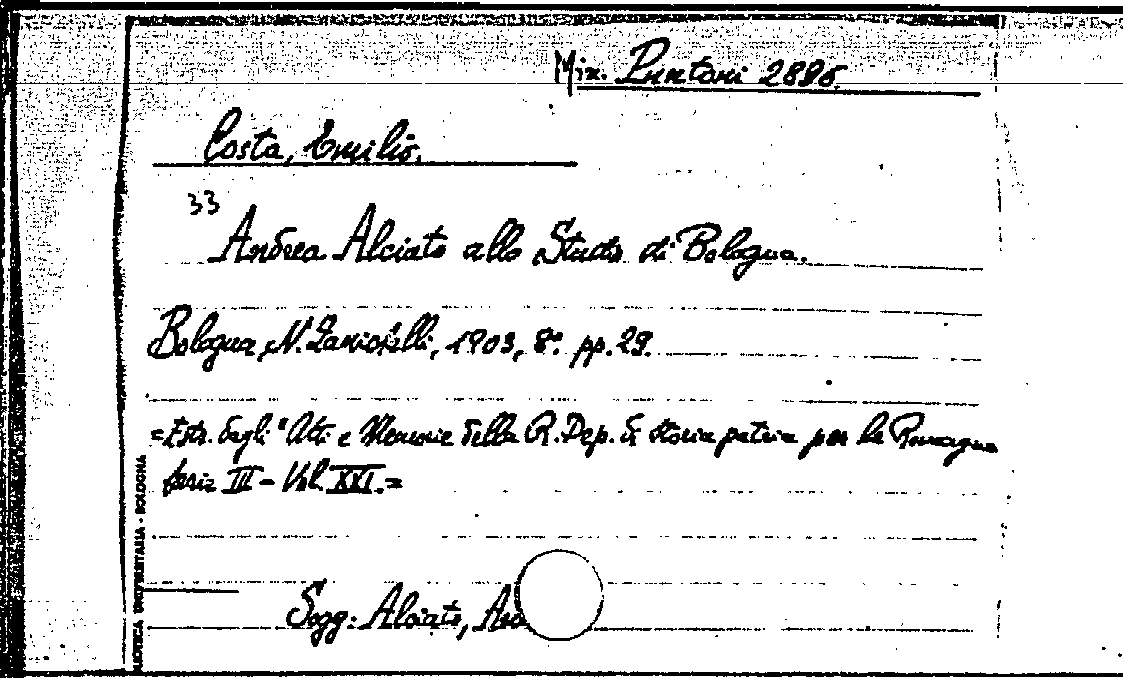 Mix. Puntoni 2896.
Costa, Emilio.
33
Andrea Alciato allo Studio di Bologna.
Bologna, N. Zanichelli, 1903, 8°. pp. 29.
= Estr. dagli "Atti e Memorie della R. Dep. di storia patria per la Romagna
serie III - Vol. XXI. =
Sogg: Alciato, And
UNIVERSITARIA - BOLOGNA